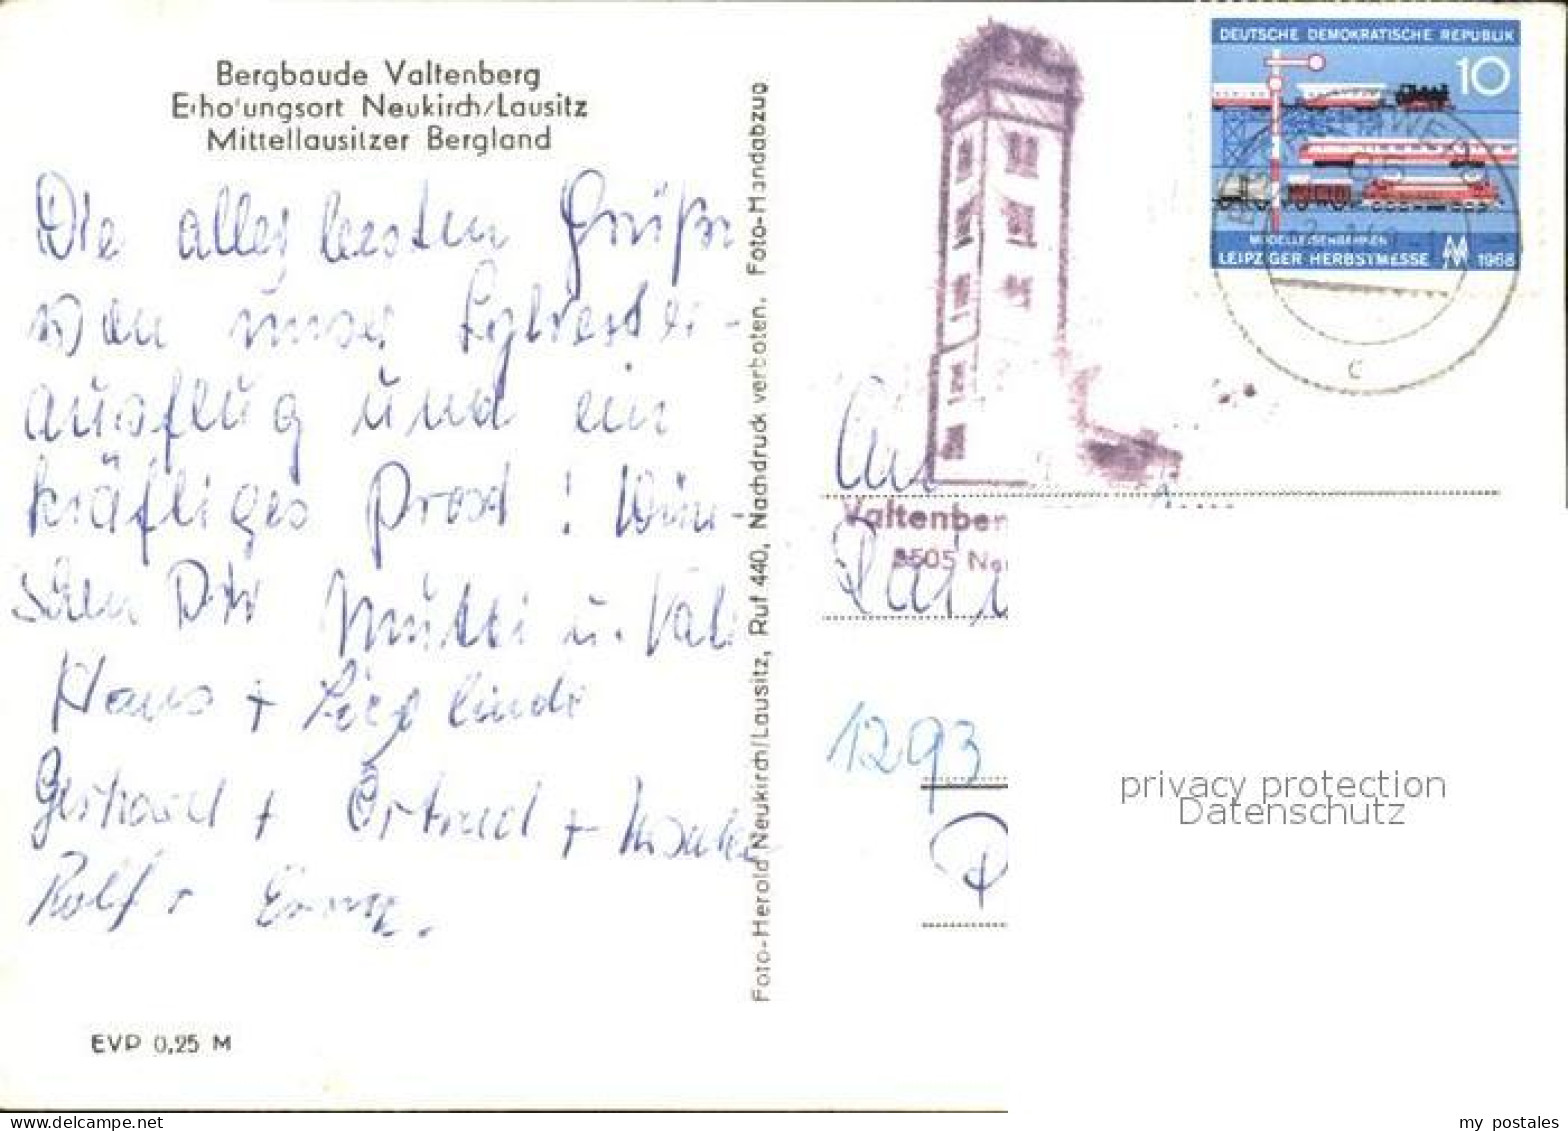 Bergbaude Valtenberg
Erholungsort Neukirch/Lausitz
Mittellausitzer Bergland
Die allerbesten Grüße
von unser Sylvester-
ausflug und ein
kräftiges Prost! Wün-
schen Dir Mutti u. Vati
Hans + Sieglinde
Gerhard + Ortrud +
Rolf +
EVP 0,25 M
Foto-Herold Neukirch/Lausitz, Ruf 440, Nachdruck verboten. Foto-Handabzug
DEUTSCHE DEMOKRATISCHE REPUBLIK
10
MODELLEISENBAHNEN
LEIPZIGER HERBSTMESSE 1968
85
c
Valtenber
8505 Neu
1293
privacy protection
Datenschutz
my postales